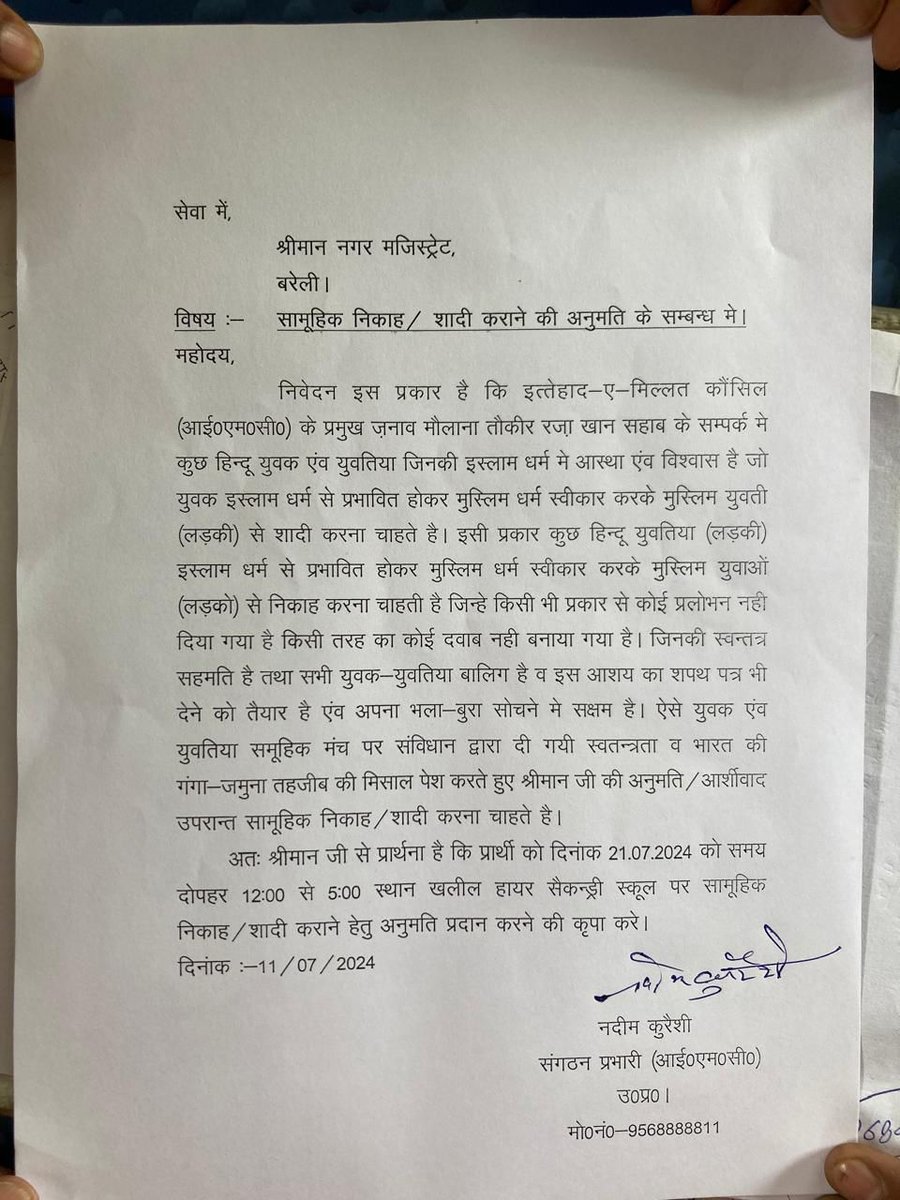 सेवा में,
श्रीमान नगर मजिस्ट्रेट,
बरेली।
विषय :– सामूहिक निकाह/ शादी कराने की अनुमति के सम्बन्ध मे।
महोदय,
निवेदन इस प्रकार है कि इत्तेहाद–ए–मिल्लत कौंसिल
(आई०एम०सी०) के प्रमुख ज़नाव मौलाना तौकीर रजा़ खान सहाब के सम्पर्क मे
कुछ हिन्दू युवक एंव युवतिया जिनकी इस्लाम धर्म मे आस्था एंव विश्वास है जो
युवक इस्लाम धर्म से प्रभावित होकर मुस्लिम धर्म स्वीकार करके मुस्लिम युवती
(लड़की) से शादी करना चाहते है। इसी प्रकार कुछ हिन्दू युवतिया (लड़की)
इस्लाम धर्म से प्रभावित होकर मुस्लिम धर्म स्वीकार करके मुस्लिम युवाओं
(लड़को) से निकाह करना चाहती है जिन्हे किसी भी प्रकार से कोई प्रलोभन नही
दिया गया है किसी तरह का कोई दवाब नही बनाया गया है। जिनकी स्वन्तत्र
सहमति है तथा सभी युवक–युवतिया बालिग है व इस आशय का शपथ पत्र भी
देने को तैयार है एंव अपना भला–बुरा सोचने मे सक्षम है। ऐसे युवक एंव
युवतिया समूहिक मंच पर संविधान द्वारा दी गयी स्वतन्त्रता व भारत की
गंगा–जमुना तहजीब की मिसाल पेश करते हुए श्रीमान जी की अनुमति/आर्शीवाद
उपरान्त सामूहिक निकाह/शादी करना चाहते है।
अतः श्रीमान जी से प्रार्थना है कि प्रार्थी को दिनांक 21.07.2024 को समय
दोपहर 12:00 से 5:00 स्थान खलील हायर सैकन्ड्री स्कूल पर सामूहिक
निकाह/शादी कराने हेतु अनुमति प्रदान करने की कृपा करे।
दिनांक :–11/07/2024
नदीम कुरैशी
संगठन प्रभारी (आई०एम०सी०)
उ०प्र०।
मो०नं०–9568888811